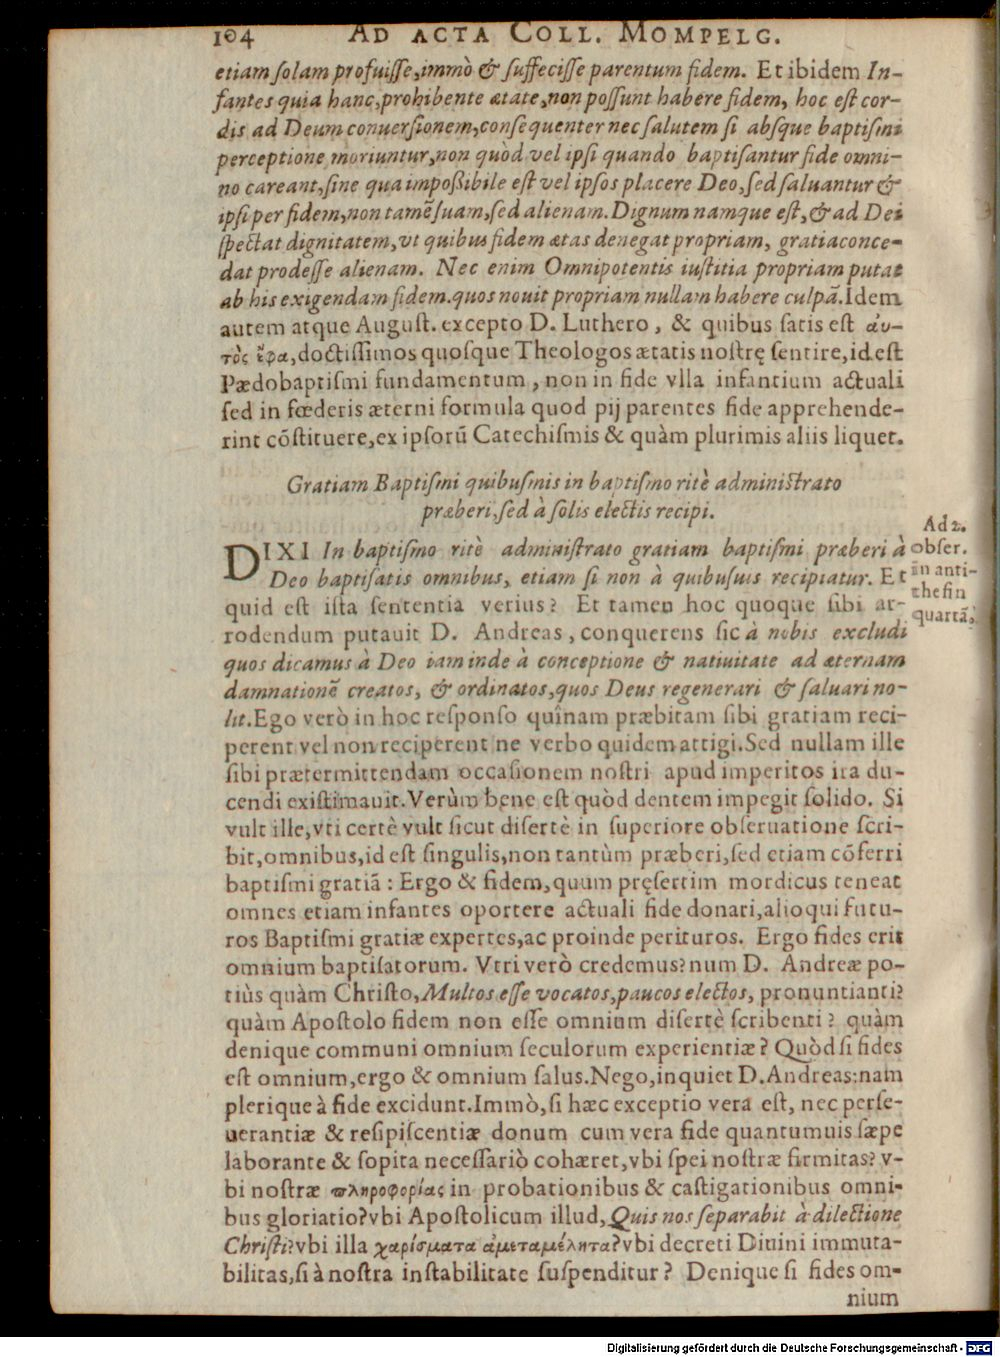 104 AD ACTA COLL. MOMPELG.
etiam ſolam profuiſſe, immò & ſuffeciſſe parentum fidem. Et ibidem In-
fantes quia hanc, prohibente ætate, non poſſunt habere fidem, hoc eſt cor-
dis ad Deum conuerſionem, conſequenter nec ſalutem ſi absque baptiſmi
perceptione moriuntur, non quòd vel ipſi quando baptiſantur fide omni-
no careant, ſine qua impoßibile eſt vel ipſos placere Deo, ſed ſaluantur &
ipſi per fidem, non tamẽ ſuam, ſed alienam. Dignum namque eſt, & ad Dei
ſpectat dignitatem, vt quibus fidem ætas denegat propriam, gratia conce-
dat prodeſſe alienam. Nec enim Omnipotentis iuſtitia propriam putat
ab his exigendam fidem. quos nouit propriam nullam habere culpã. Idem
autem atque Auguſt. excepto D. Luthero, & quibus ſatis eſt ἀυ-
τὸς ἔφα, doctiſſimos quoſque Theologos ætatis noſtrę ſentire, id eſt
Pædobaptiſmi fundamentum, non in fide vlla infantium actuali
ſed in fœderis æterni formula quod pij parentes fide apprehende-
rint cõſtituere, ex ipſorũ Catechiſmis & quàm plurimis aliis liquet.
Gratiam Baptiſmi quibuſuis in baptiſmo ritè adminiſtrato
præberi, ſed à ſolis electis recipi.
Ad 2.
obſer.
in anti-
theſin
quartã.
DIXI In baptiſmo ritè adminiſtrato gratiam baptiſmi præberi à
Deo baptiſatis omnibus, etiam ſi non à quibuſuis recipiatur. Et
quid eſt iſta ſententia verius? Et tamen hoc quoque ſibi ar-
rodendum putauit D. Andreas, conquerens ſic à nobis excludi
quos dicamus à Deo iam inde à conceptione & natiuitate ad æternam
damnationẽ creatos, & ordinatos, quos Deus regenerari & ſaluari no-
lit. Ego verò in hoc reſponſo quînam præbitam ſibi gratiam reci-
perent vel non reciperent ne verbo quidem attigi. Sed nullam ille
ſibi prætermittendam occaſionem noſtri apud imperitos ita du-
cendi exiſtimauit. Verùm bene eſt quòd dentem impegit ſolido. Si
vult ille, vti certè vult ſicut diſertè in ſuperiore obſeruatione ſcri-
bit, omnibus, id eſt ſingulis, non tantùm præberi, ſed etiam cõferri
baptiſmi gratiã: Ergo & fidem, quum pręſertim mordicus teneat
omnes etiam infantes oportere actuali fide donari, alioqui futu-
ros Baptiſmi gratiæ expertes, ac proinde perituros. Ergo fides erit
omnium baptiſatorum. Vtri verò credemus? num D. Andreæ po-
tiùs quàm Chriſto, Multos eſſe vocatos, paucos electos, pronuntianti?
quàm Apoſtolo fidem non eſſe omnium diſertè ſcribenti? quàm
denique communi omnium ſeculorum experientiæ? Quòd ſi fides
eſt omnium, ergo & omnium ſalus. Nego, inquiet D. Andreas: nam
plerique à fide excidunt. Immò, ſi hæc exceptio vera eſt, nec perſe-
uerantiæ & reſipiſcentiæ donum cum vera fide quantumuis ſæpe
laborante & ſopita neceſſariò cohæret, vbi ſpei noſtræ firmitas? v-
bi noſtræ πληροφορίας in probationibus & caſtigationibus omni-
bus gloriatio? vbi Apoſtolicum illud, Quis nos ſeparabit à dilectione
Chriſti? vbi illa χαρίσματα ἀμεταμέλητα? vbi decreti Diuini immuta-
bilitas, ſi à noſtra inſtabilitate ſuſpenditur? Denique ſi fides om-
nium
Digitalisierung gefördert durch die Deutsche Forschungsgemeinschaft - DFG